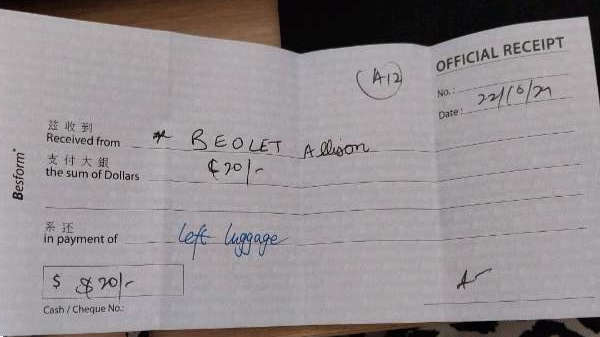 A12
OFFICIAL RECEIPT
No.:
Date: 22/10/21
兹收到
Received from BEOLET Allison
支付大銀
the sum of Dollars $20/-
系还
in payment of left luggage
$ $20/-
Cash / Cheque No.:
Besform